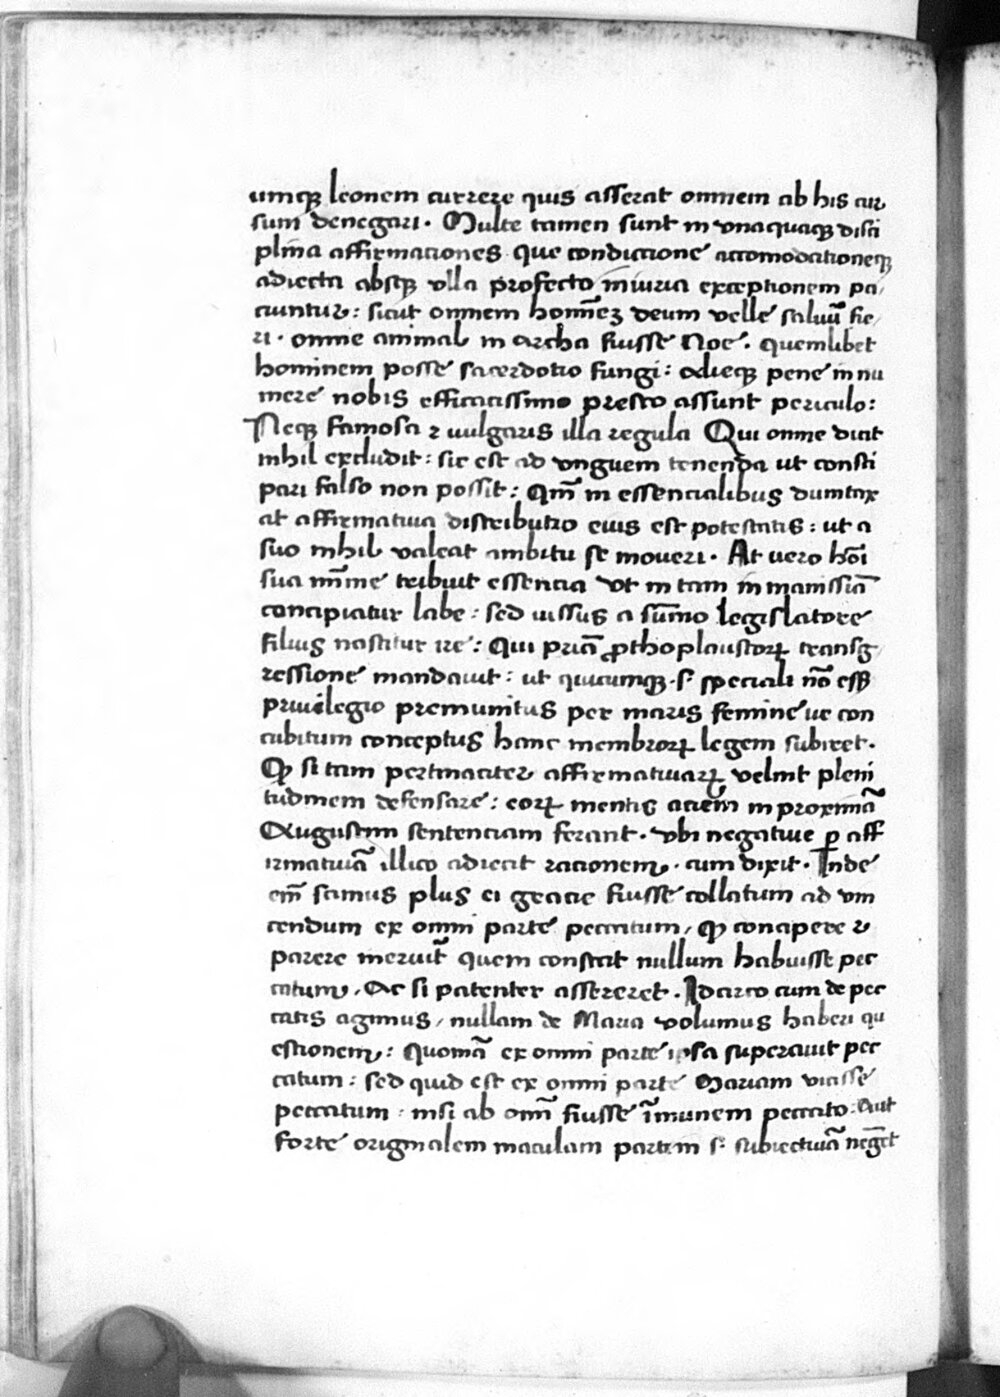 umqꝫ leonem currere quis asserat omnem ab his cur
sum denegari. Multe tamen sunt in vnaquaqꝫ disci
plina affirmationes que condictione accomodationeqꝫ
adiecta absqꝫ vlla profecto iniuria exceptionem pa/
ciuntur: sicut omnem hom̄eꝫ deum velle saluū fie/
ri. omne animal in archa fuisse Noe. quemlibet
hominem posse sacerdotio fungi: alieqꝫ pene innu
mere nobis efficacissimo presto assunt periculo:
Neqꝫ famosa ⁊ vulgaris illa regula Qui omne dicit
nihil excludit: sic est ad vnguem tenenda ut consti
pari falso non possit: Qm̄ in essencialibus dumtax
at affirmatiua distributio eius est potestatis: ut a
suo nihil valeat ambitu se moueri. At uero hoı̄
sua mı̄me tribuit essencia vt in tam inmanissiā
concipiatur labe: sed iussus a sūmo legislatore
filius nascitur ire: Qui priā ꝓthoplaustorꝝ transg/
ressione mandauit: ut quicumqꝫ .s. speciali nō ess&
priuilegio premunitus per maris femineue con
cubitum conceptus hanc membrorꝝ legem subiret.
Qꝫ si tam pertinaciter affirmatiuarꝝ velint pleni
tudinem defensare: eorꝝ mentis aciem in proximā
Augustini sentenciam ferant. vbi negatiue ꝑ aff
irmatiuā illico adiecit rationem. cum dixit. Inde
em̄ scimus plus ei gracie fuisse collatum ad vin
cendum ex omni parte peccatum, qꝫ concipere ⁊
parere meruit quem constat nullum habuisse pec
catum. Ac si patenter assereret. Idcirco cum de pec
catis agimus, nullam de Maria volumus haberi qu
estionem: Quoniā ex omni parte ipsa superauit pec
catum: sed quid est ex omni parte Mariam vicisse
peccatum: nisi ab omı̄ fuisse īmunem peccato: Aut
forte originalem maculam partem .s. subiectiuā neḡet